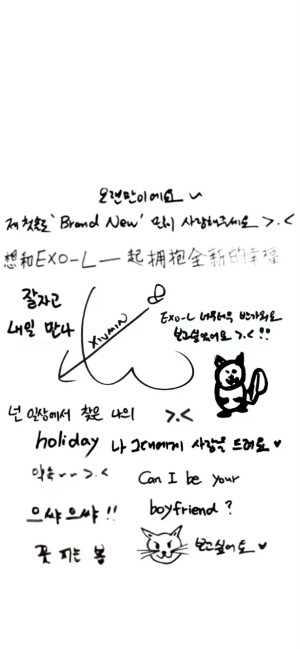 오랜만이에요 ~
제 첫솔로 'Brand New' 많이 사랑해주세요 >.<
想和EXO-L一起拥抱全新的幸福
잘자고
내일 만나
XIUMIN
EXO-L 너무너무 반가워요
보고싶었어요 >.< !!
넌 일상에서 찾은 나의 >.<
holiday 나 그대에게 사랑을 드려요 ♥
약속~~ >.<
Can I be your
boyfriend ?
으쌰으쌰 !!
꽃 피는 봄
보고싶어요 ♥